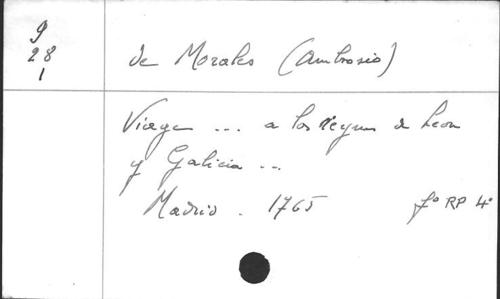 9
28
1
de Morales (Ambrosio)
Viage ... a los reynos de Leon
y Galicia ...
Madrid . 1765
f° RP 4°